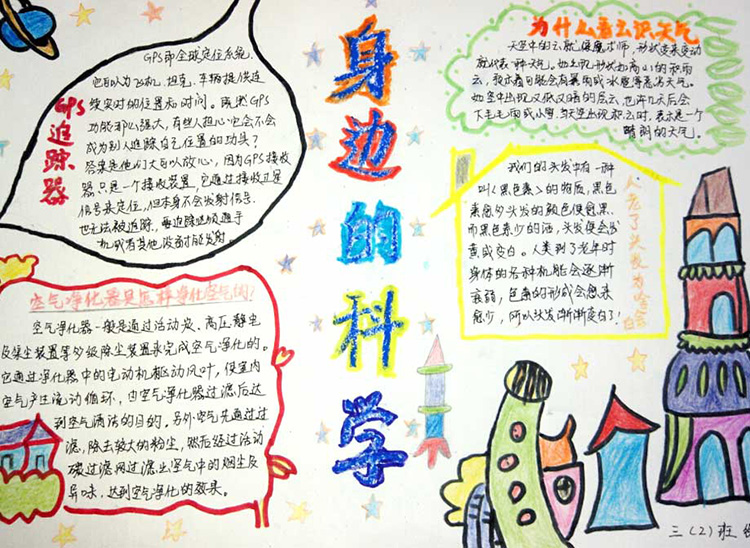 身边的科学
GPS追踪器
GPS即全球定位系统,
它可以为飞机、坦克、车辆提供连
续实时的位置和时间。既然GPS
功能那么强大,有些人担心它会不会
成为别人追踪自己位置的功头?
答案是他们大可以放心,因为GPS接收
器只是一个接收装置,它通过接收卫星
信号来定位,但本身不会发射信号,
也无法被追踪。要追踪必须通手
机或有其他设备时能发射。
空气净化器是怎样净化空气的?
空气净化器一般是通过活动炭、高压静电
及集尘装置等多级除尘装置来完成空气净化的。
它通过净化器中的电动机驱动风叶,使室内
空气产生流动循环,由空气净化器过滤后达
到空气清洁的目的。另外空气先通过过
滤,除去较大的粉尘,然后经过活动
碳过滤网过滤出空气中的烟尘及
异味,达到空气净化的效果。
为什么看云识天气
天空中的云就像魔术师,形状变来变动
就代表一种天气。她出现形状如高山的积雨
云,就示着可能会有暴雨或冰雹等恶劣天气。
她空中出现灰灰又暗的层云,也许几天后会
下毛毛雨或小雪。当天空出现积云时,表示是一个
晴朗的天气。
人老了头发为啥会白
我们的头发中有一种
叫《黑色素》的物质,黑色
素愈多头发的颜色便愈黑。
而黑色素少的话,头发便会发
黄或变白。人类到了老年时
身体的各种机能会逐渐
衰弱,色素的形成会愈来
愈少,所以头发渐渐变白了!
三(2)班